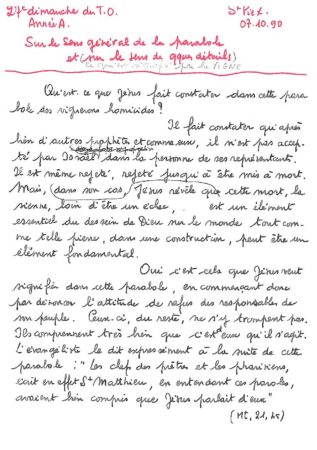 27e dimanche du T.O. St Rex.
Année A. 07.10.90
Sur le sens général de la parabole
et (sur le sens de qques détails)
ce qu'elle signifie par la VIGNE
Qu'est ce que Jésus fait constater dans cette para
bole des vignerons homicides ?
Il fait constater qu'après
bien d'autres prophètes et comme eux, il n'est pas accep-
té par Israël dans la personne de ses représentants.
Il est même rejeté, rejeté jusqu'à être mis à mort.
Mais, (dans son cas) Jésus révèle que cette mort, la
sienne, loin d'être un échec, est un élément
essentiel du dessein de Dieu sur le monde tout com-
me telle pierre, dans une construction, peut être un
élément fondamental.
Oui c'est cela que Jésus veut
signifier dans cette parabole, en commençant donc
par dénoncer l'attitude de refus des responsables de
son peuple. Ceux-ci, du reste, ne s'y trompent pas.
Ils comprennent très bien que c'est d'eux qu'il s'agit.
L'évangéliste le dit expressément à la suite de cette
parabole : " Les chefs des prêtres et les pharisiens,
écrit en effet St Matthieu, en entendant ces paroles,
avaient bien compris que Jésus parlait d'eux "
(Mt, 21, 45)